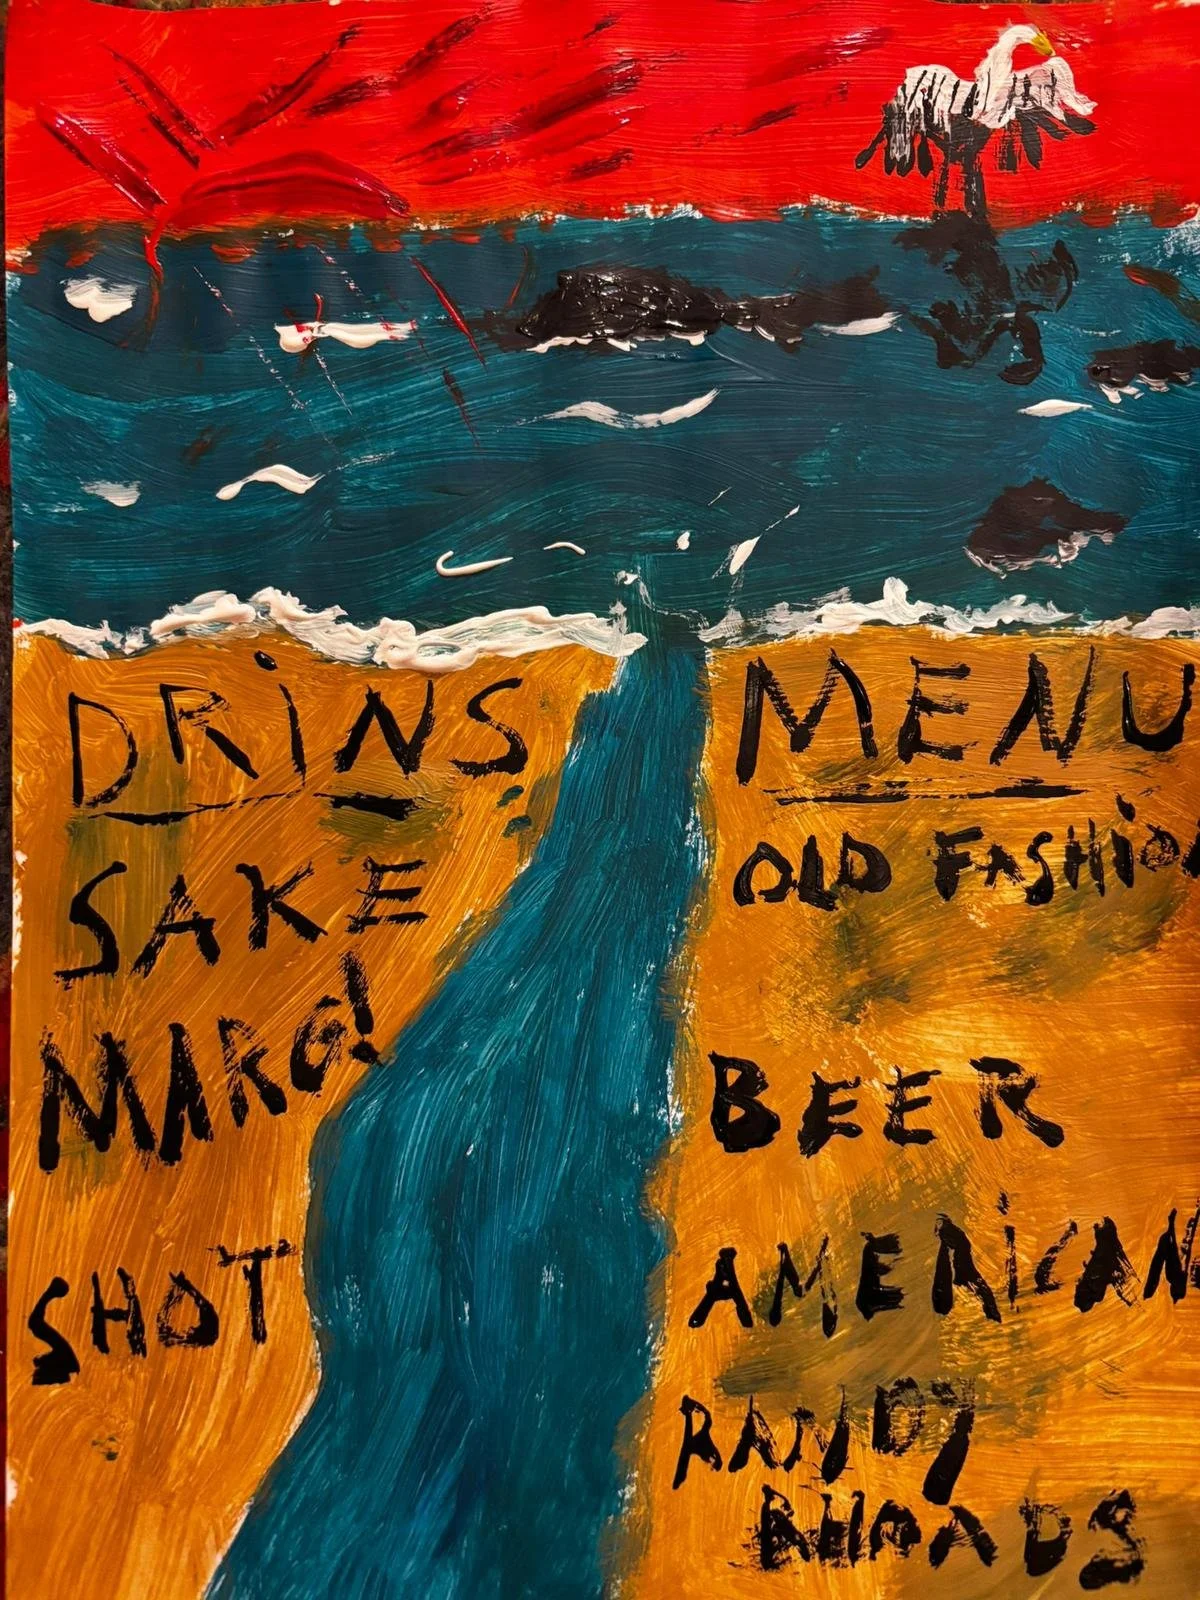 DRiNS
SAKE
MARG!
SHOT
MENU
OLD FASHiO
BEER
AMERiCAN
RANDY
RHOADS